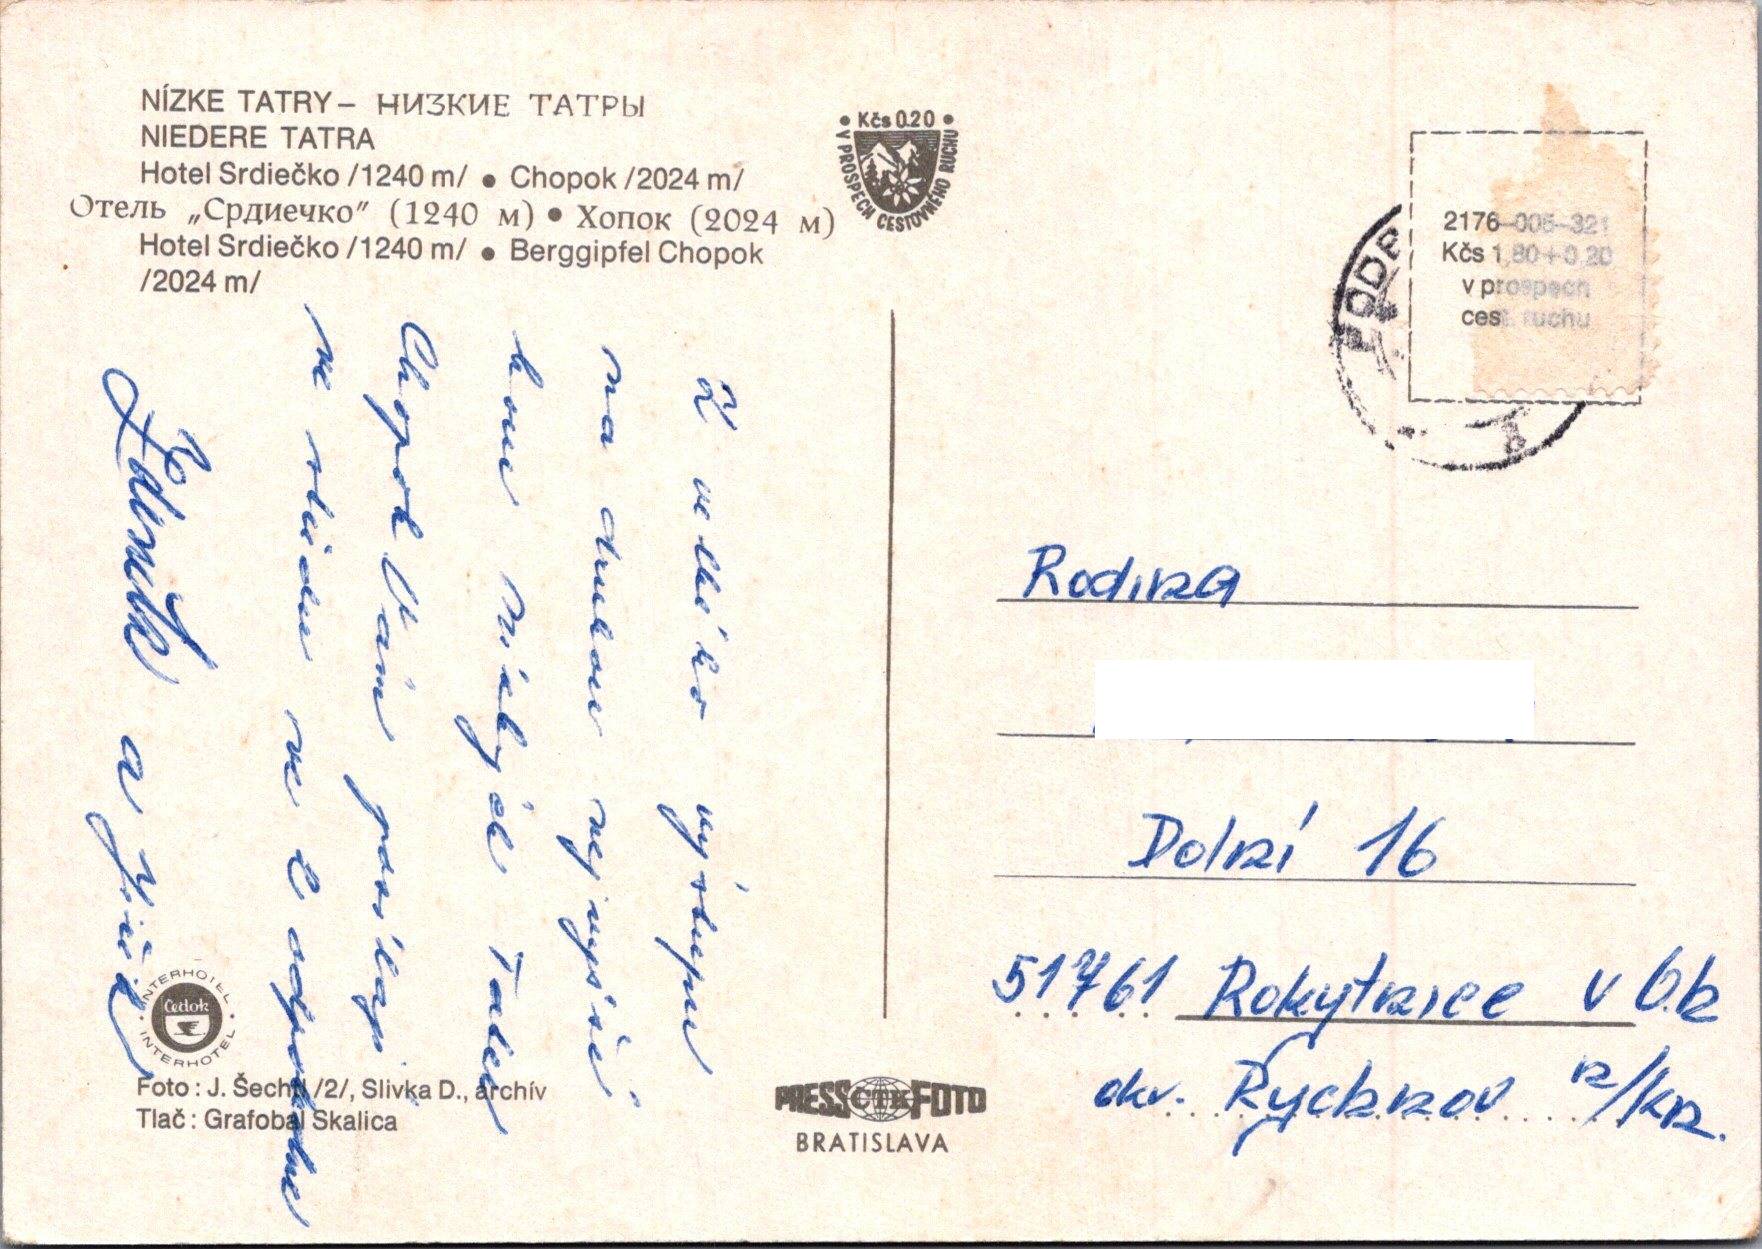 NÍZKE TATRY – НИЗКИЕ ТАТРЫ
NIEDERE TATRA
Hotel Srdiečko /1240 m/ • Chopok /2024 m/
Отель „Срдиечко” (1240 м) • Хопок (2024 м)
Hotel Srdiečko /1240 m/ • Berggipfel Chopok
/2024 m/
• Kčs 0.20 •
V PROSPECH CESTOVNÉHO RUCHU
2176-005-321
Kčs 1,80+0,20
v prospech
cest. ruchu
Z velkého výstupu
na druhou nejvyšší
horu Nízkých Tater
Chopok Vám posílají
Zdeněk a
Rodina
Dolní 16
51761 Rokytnice v O.h
okr. Rychnov n/Kn.
INTERHOTEL
Čedok
INTERHOTEL
Foto : J. Šechtl /2/, Slivka D., archív
Tlač : Grafobal Skalica
PRESS ČTK FOTO
BRATISLAVA